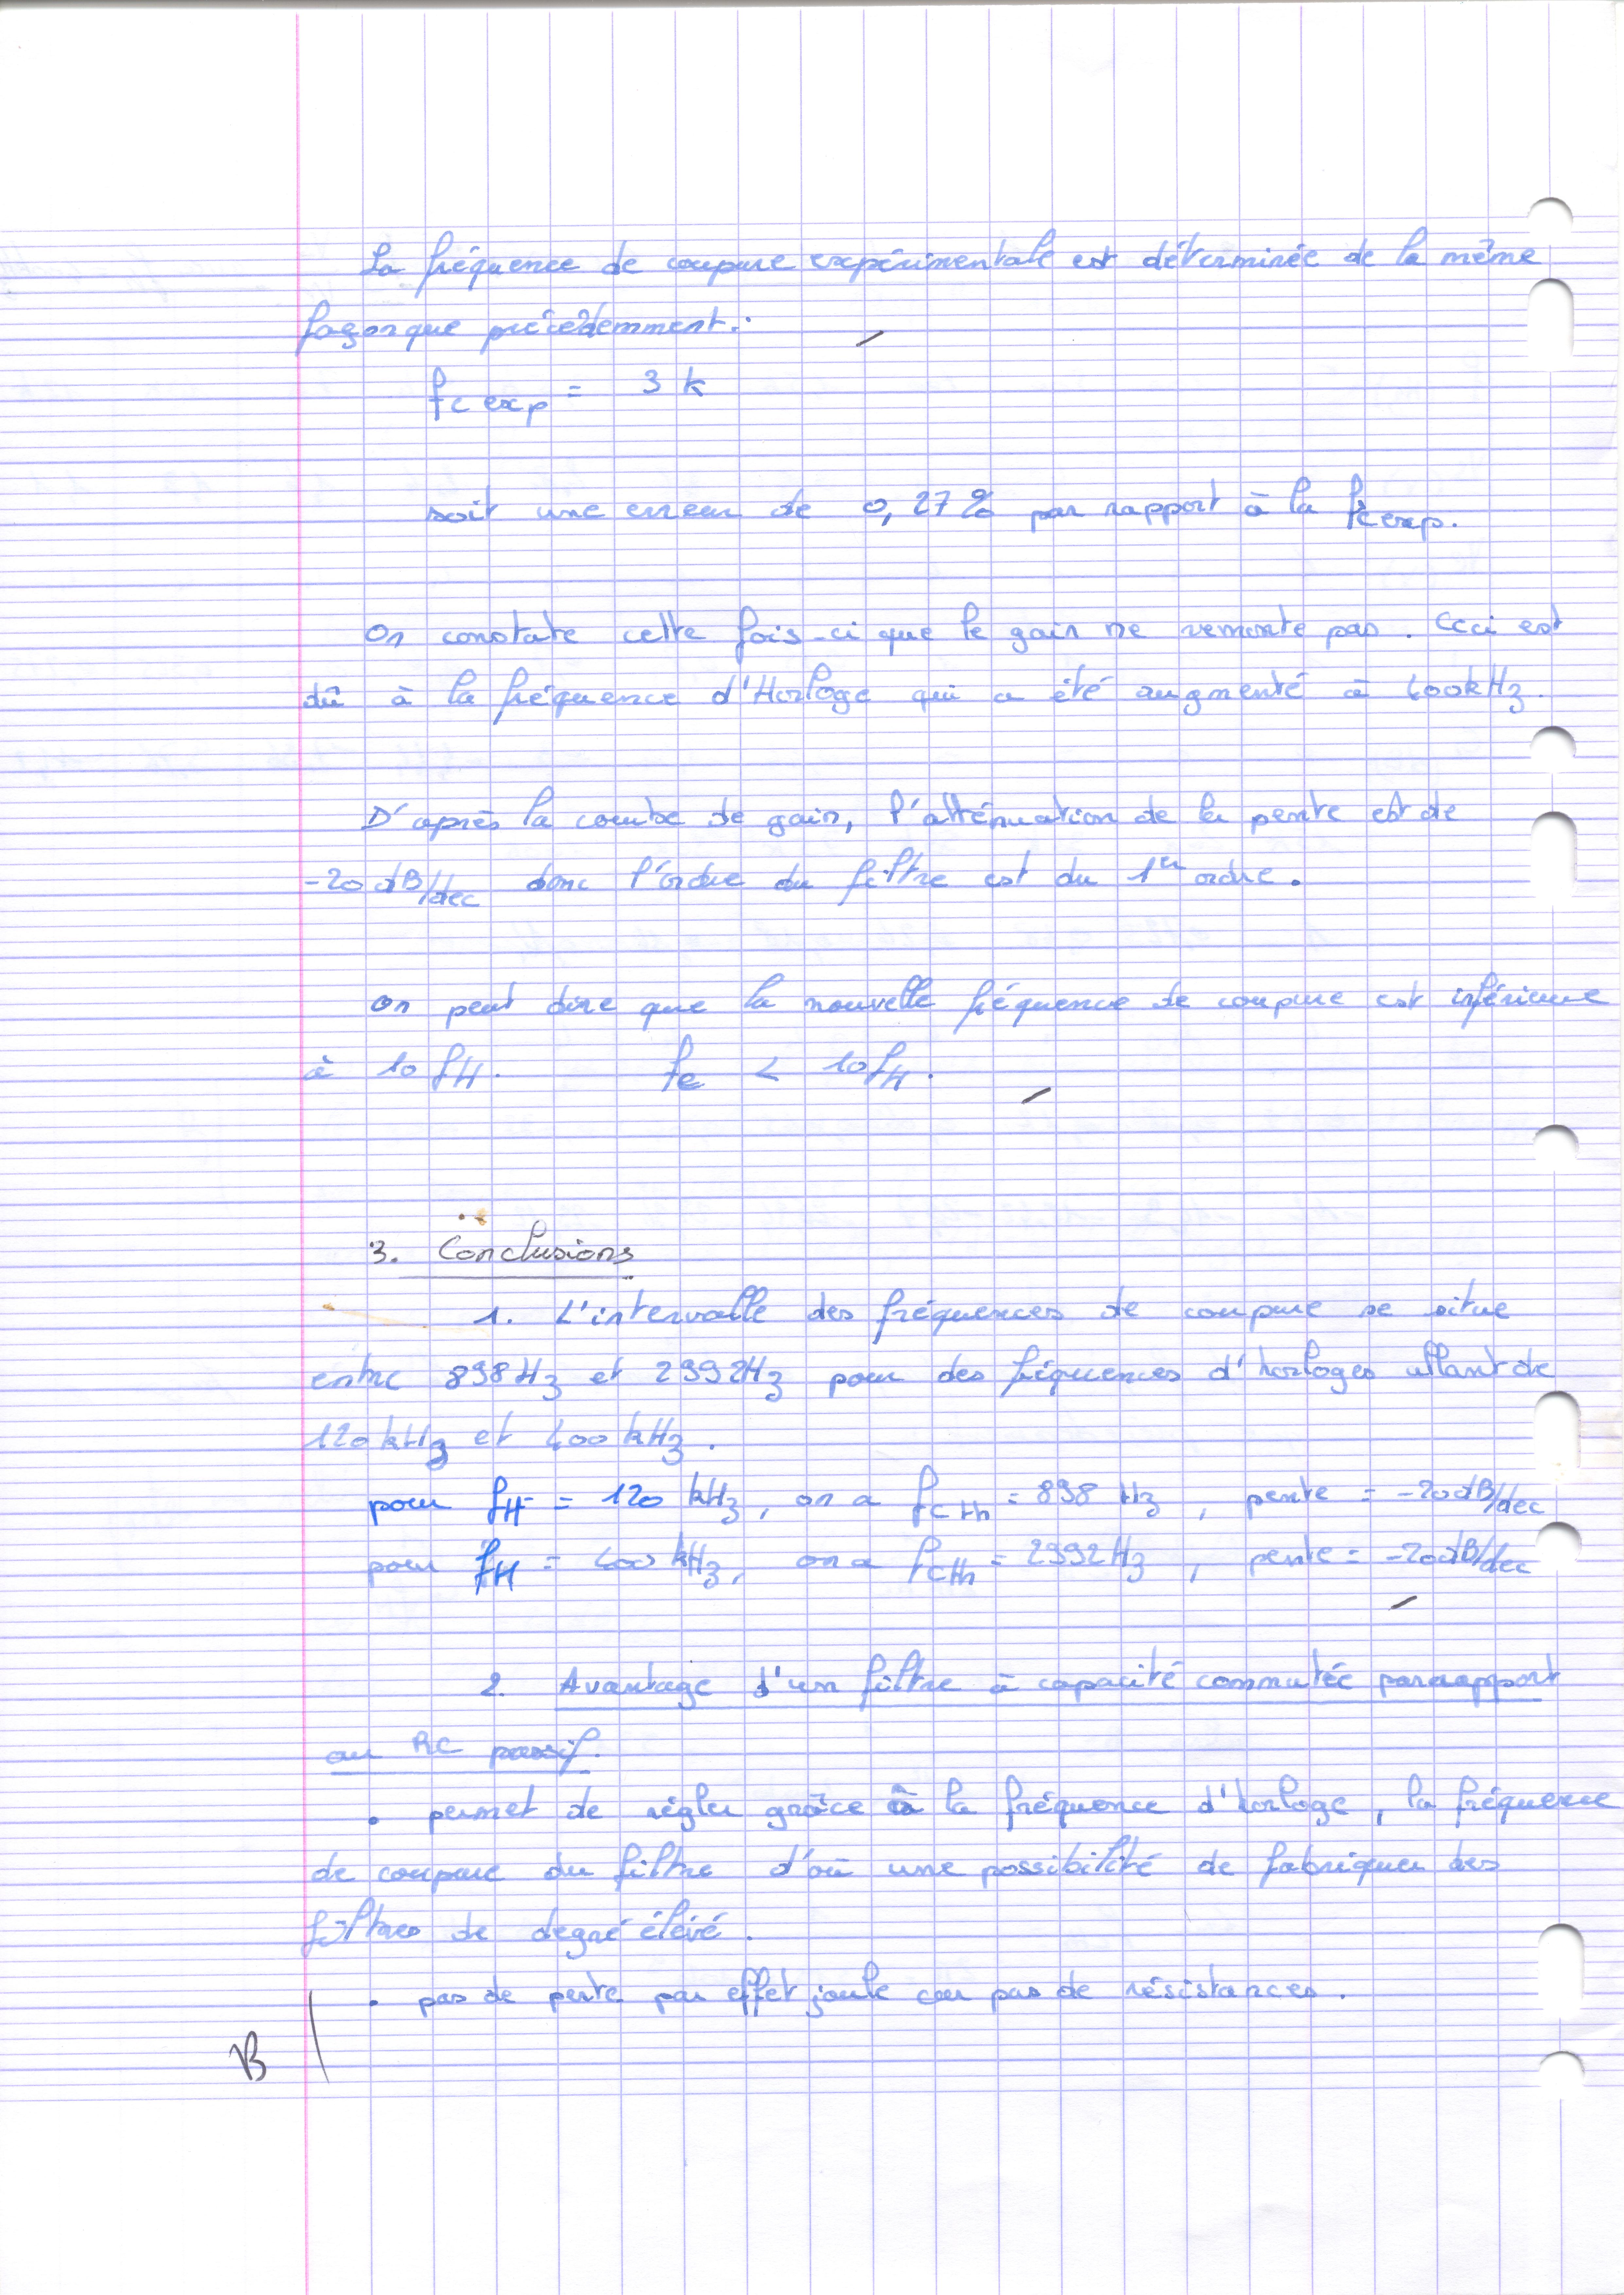 La fréquence de coupure expérimentale est déterminée de la même
façon que précédemment.
fc exp = 3 k
soit une erreur de 0,27 % par rapport à la fc exp.
On constate cette fois-ci que le gain ne remonte pas. Ceci est
dû à la fréquence d'Horloge qui a été augmenté à 400kHz.
D'après la courbe de gain, l'atténuation de la pente est de
-20 dB/dec donc l'ordre du filtre est du 1er ordre.
On peut dire que la nouvelle fréquence de coupure est inférieure
à 10 fH. fc < 10 fH.
3. Conclusions
1. L'intervalle des fréquences de coupure se situe
entre 898Hz et 2992Hz pour des fréquences d'horloges allant de
120 kHz et 400 kHz.
pour fH = 120 kHz, on a fcth = 898 Hz, pente = -20dB/dec
pour fH = 400 kHz, on a fcth = 2992Hz, pente = -20dB/dec
2. Avantage d'un filtre à capacité commutée par rapport
au RC passif.
• permet de régler grâce à la fréquence d'horloge, la fréquence
de coupure du filtre d'où une possibilité de fabriquer des
filtres de degré élevé.
• pas de perte par effet joule car pas de résistances.
B